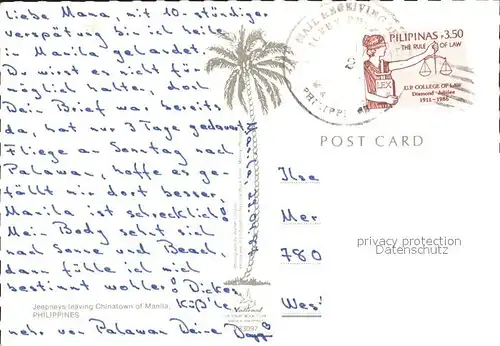 liebe Mama, mit 10-stündiger
verspätung bin ich heile
in Manila gelandet.
Du wirst es nicht für
möglich halten, doch
Dein Brief war bereits
da, hat nur 3 Tage gedauert
Fliege am Sonntag nach
Palawan, hoffe es ge-
fällt mir dort besser,
Manila ist schrecklich!
Mein Body sehnt sich
nach Sonne und Beach,
dann fühle ich mich
bestimmt wohler! Dickes
Küß'le,
mehr von Palawan Deine
Jeepneys leaving Chinatown of Manila,
PHILIPPINES
National
PILIPINAS 3.50
THE RULE OF LAW
LEX
COLLEGE OF LAW
Diamond Jubilee
1911-1986
PHILIPPI
POST CARD
Ilse
Mer
780
Wes
privacy protection
DANVERS